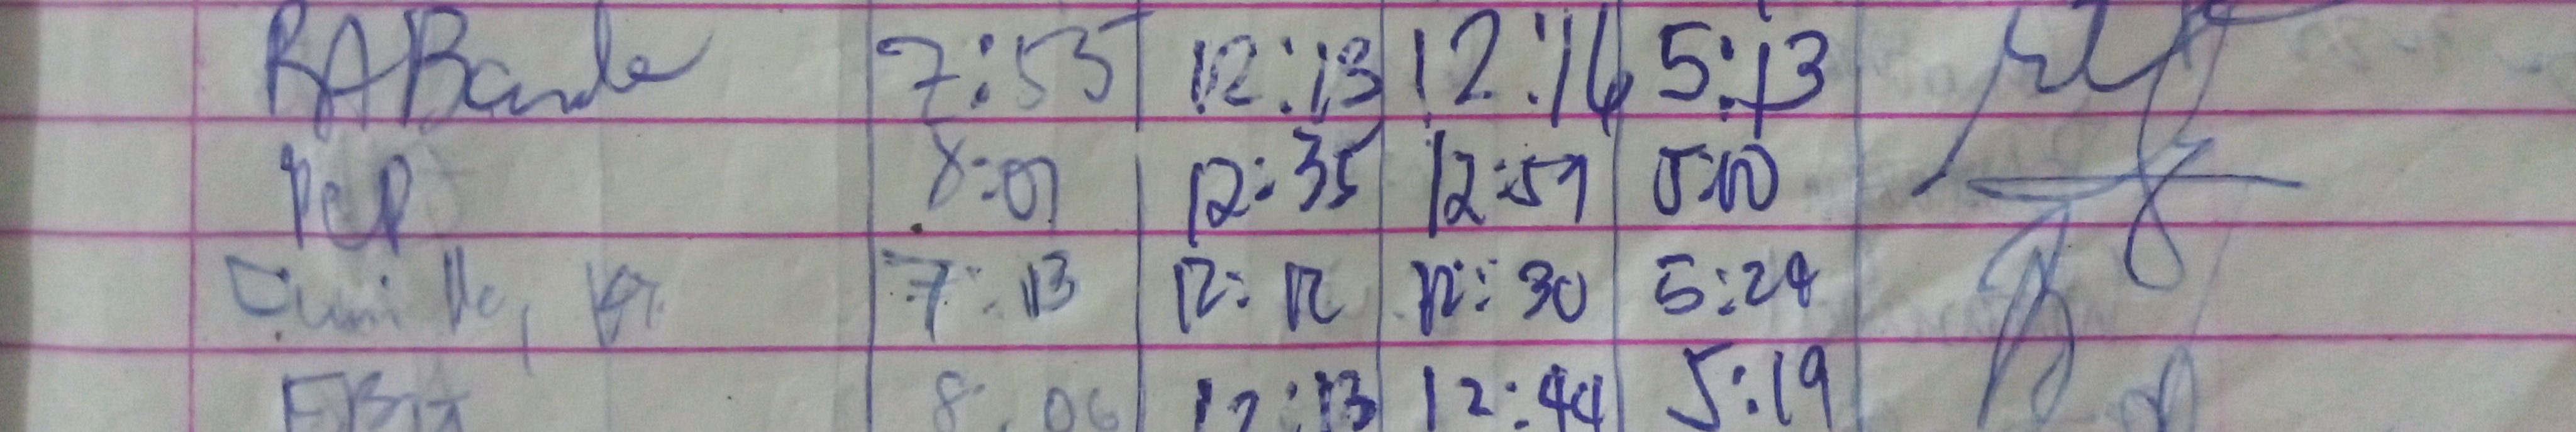 RABande 7:55 12:13 12:16 5:13
PCP 8:07 12:35 12:57 5:10
7:13 12:12 12:30 5:24
8:06 12:13 12:44 5:19